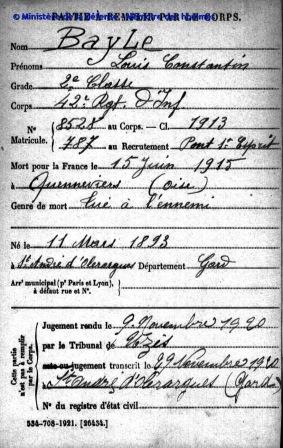 © Ministère de la Défense - Mémoire des hommes
PARTIE À REMPLIR PAR LE CORPS.
Nom BAYLE
Prénoms Louis Constantin
Grade 2e Classe
Corps 42e Rgt. D'Inf.
N° Matricule. { 8528 au Corps. — Cl. 1913
787 au Recrutement Pont St Esprit
Mort pour la France le 15 Juin 1915
à Quennevières (Oise)
Genre de mort Tué à l'ennemi
Né le 11 Mars 1893
à St André d'Olerargues Département Gard
Arrt municipal (pr Paris et Lyon), à défaut rue et N°.
Cette partie n'est pas à remplir par le Corps.
Jugement rendu le 9 Novembre 1920
par le Tribunal de Uzès
acte ou jugement transcrit le 29 Novembre 1920
à St André d'Olerargues (Gard)
N° du registre d'état civil
534-708-1921. [26434.]